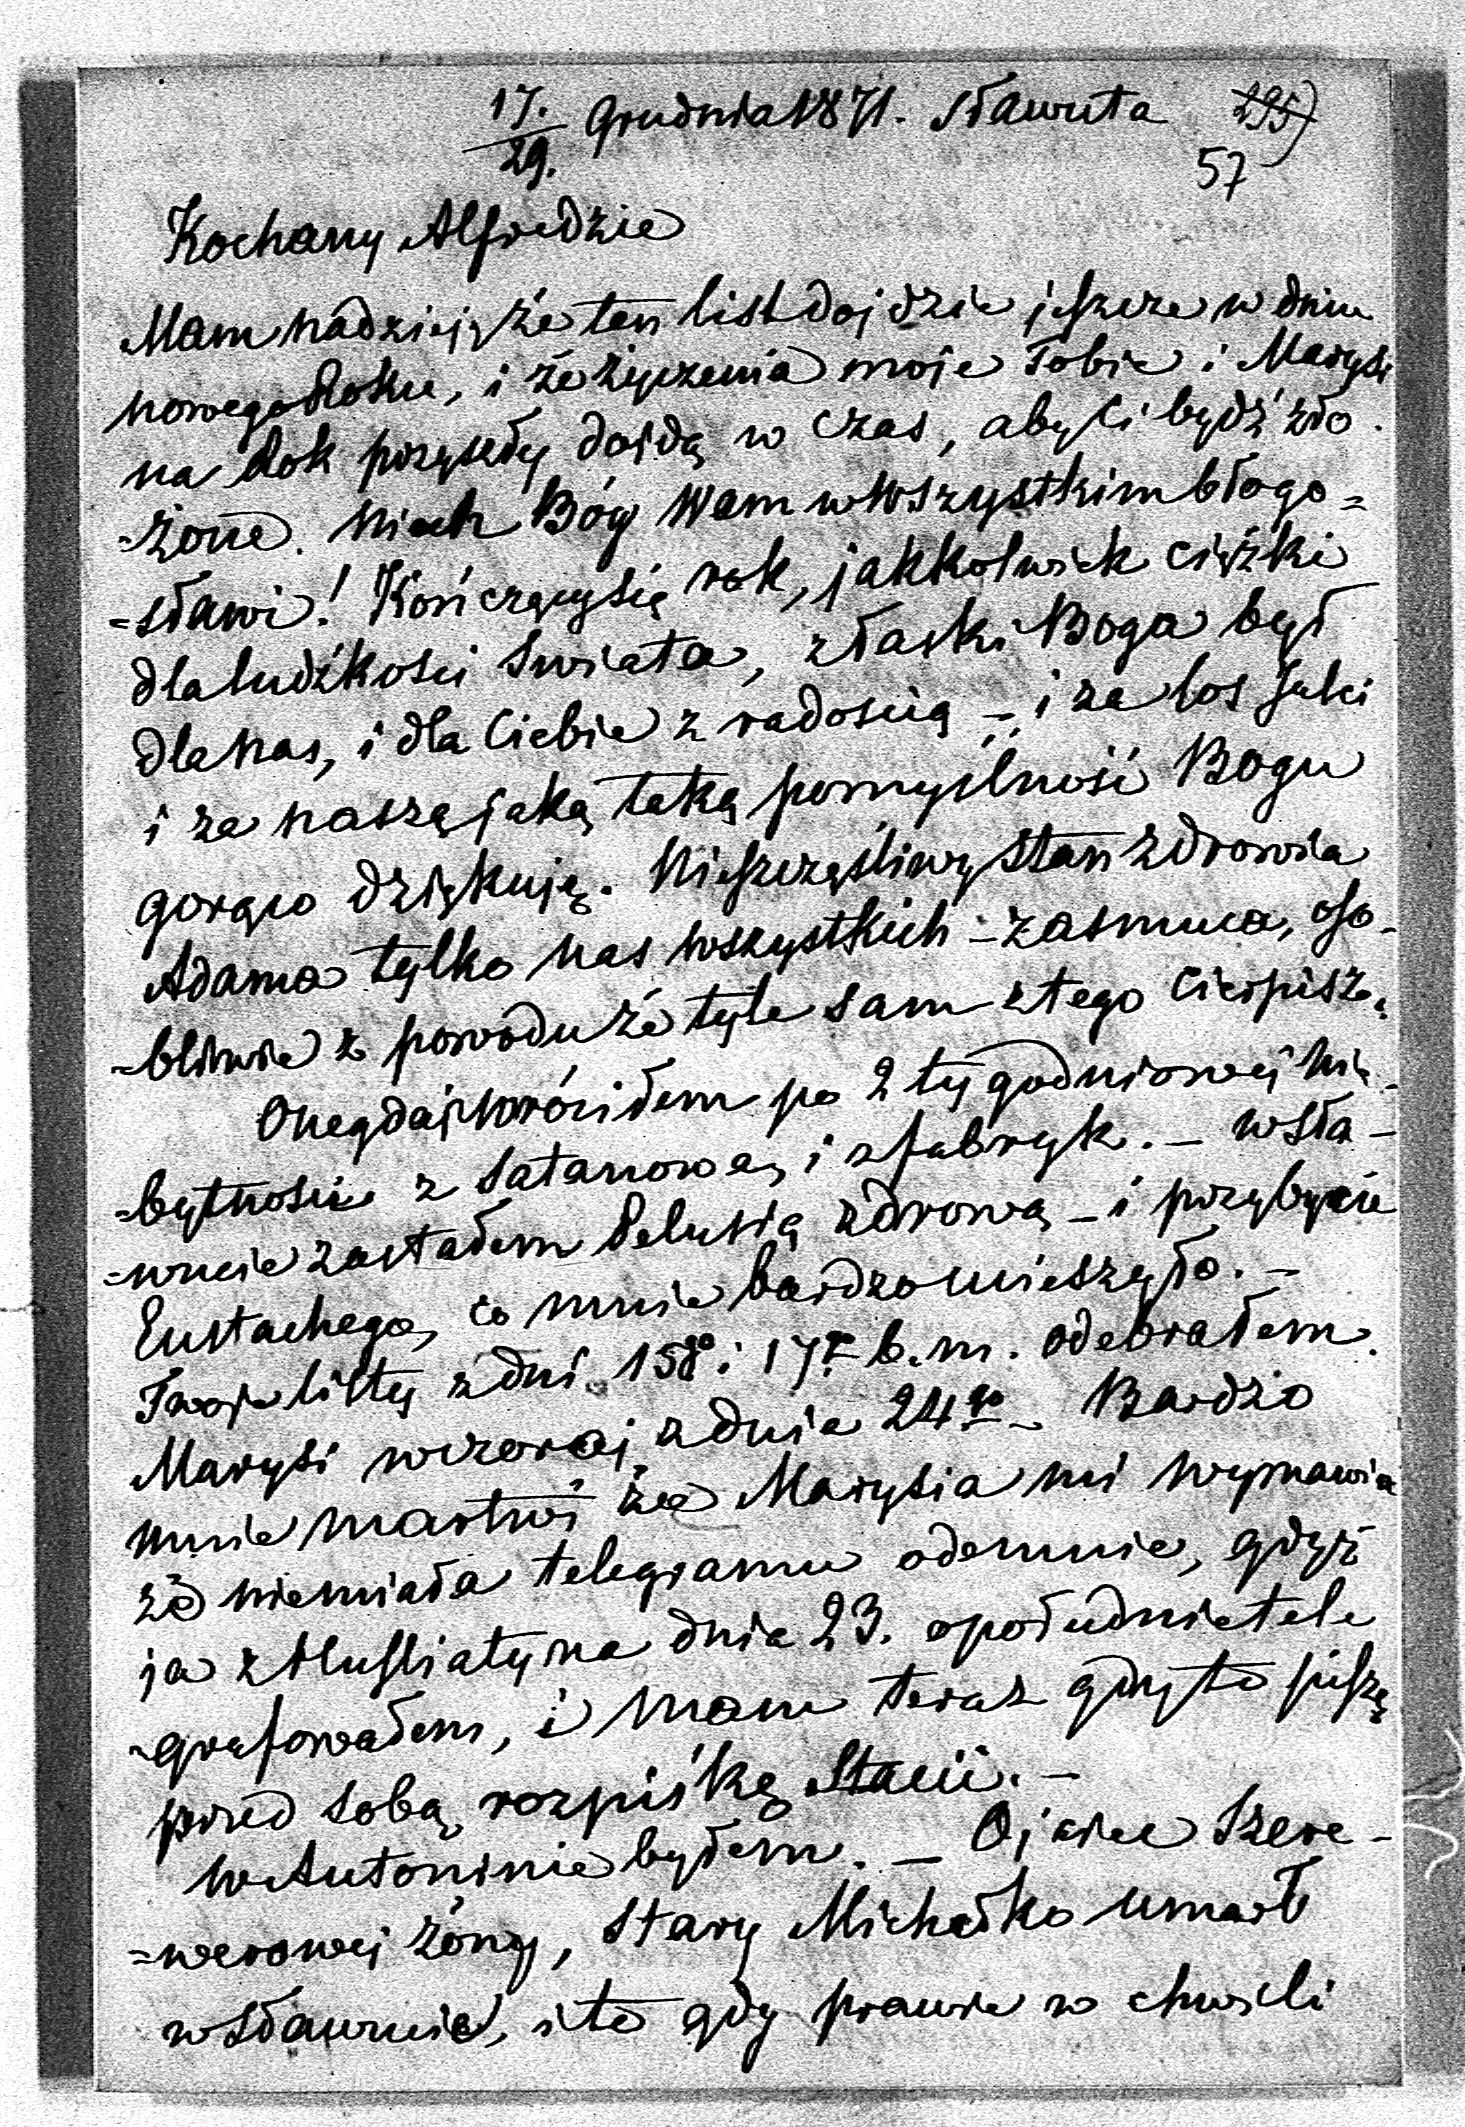 17. Grudnia 1871. Sławuta 295)
29.
57
Kochany Alfredzie
Mam nadzieję że ten list dojdzie jeszcze w dniu
nowego Roku, i że życzenia moje Tobie i Marysi
na Rok przyszły dojdą w czas, aby Ci bydź zło-
-żone. Niech Bóg Wam w wszystkim błogo=
=sławi! Kończący się rok, jakkolwiek ciężki
dla ludźkości świata, z łaski Boga był
dla nas, i dla Ciebie z radością – i za los
i za naszą jaką taką pomyślność Bogu
gorąco dziękuję. Nieszczęśliwy stan zdrowia
Adama tylko nas wszystkich – zasmuca, oso-
-bliwie z powodu że tyle sam z tego cierpisz.
Onegdaj wróciłem po 2 tygodniowej nie-
=bytności z Satanowa, i z fabryk. – w Sła-
=wucie zastałem Helusią zdrową – i przybycie
Eustachego, co mnie bardzo ucieszyło. –
Twoje listy z dni 15go i 17go b. m. odebrałem.
Marysi wczoraj z dnia 24go – Bardzo
mnie martwi że Marysia mi wymawia
że nie miała telegramu odemnie, gdyż
ja z Husiatyna dnia 23. opołudnie tele
-grafowałem, i mam teraz gdy to piszę
przed sobą rozpiskę Stacii. –
w Antoninie byłem. – Ojciec Szere-
=werowej żony, stary Michałko umarł
w Sławucie, i to gdy prawie w chwili